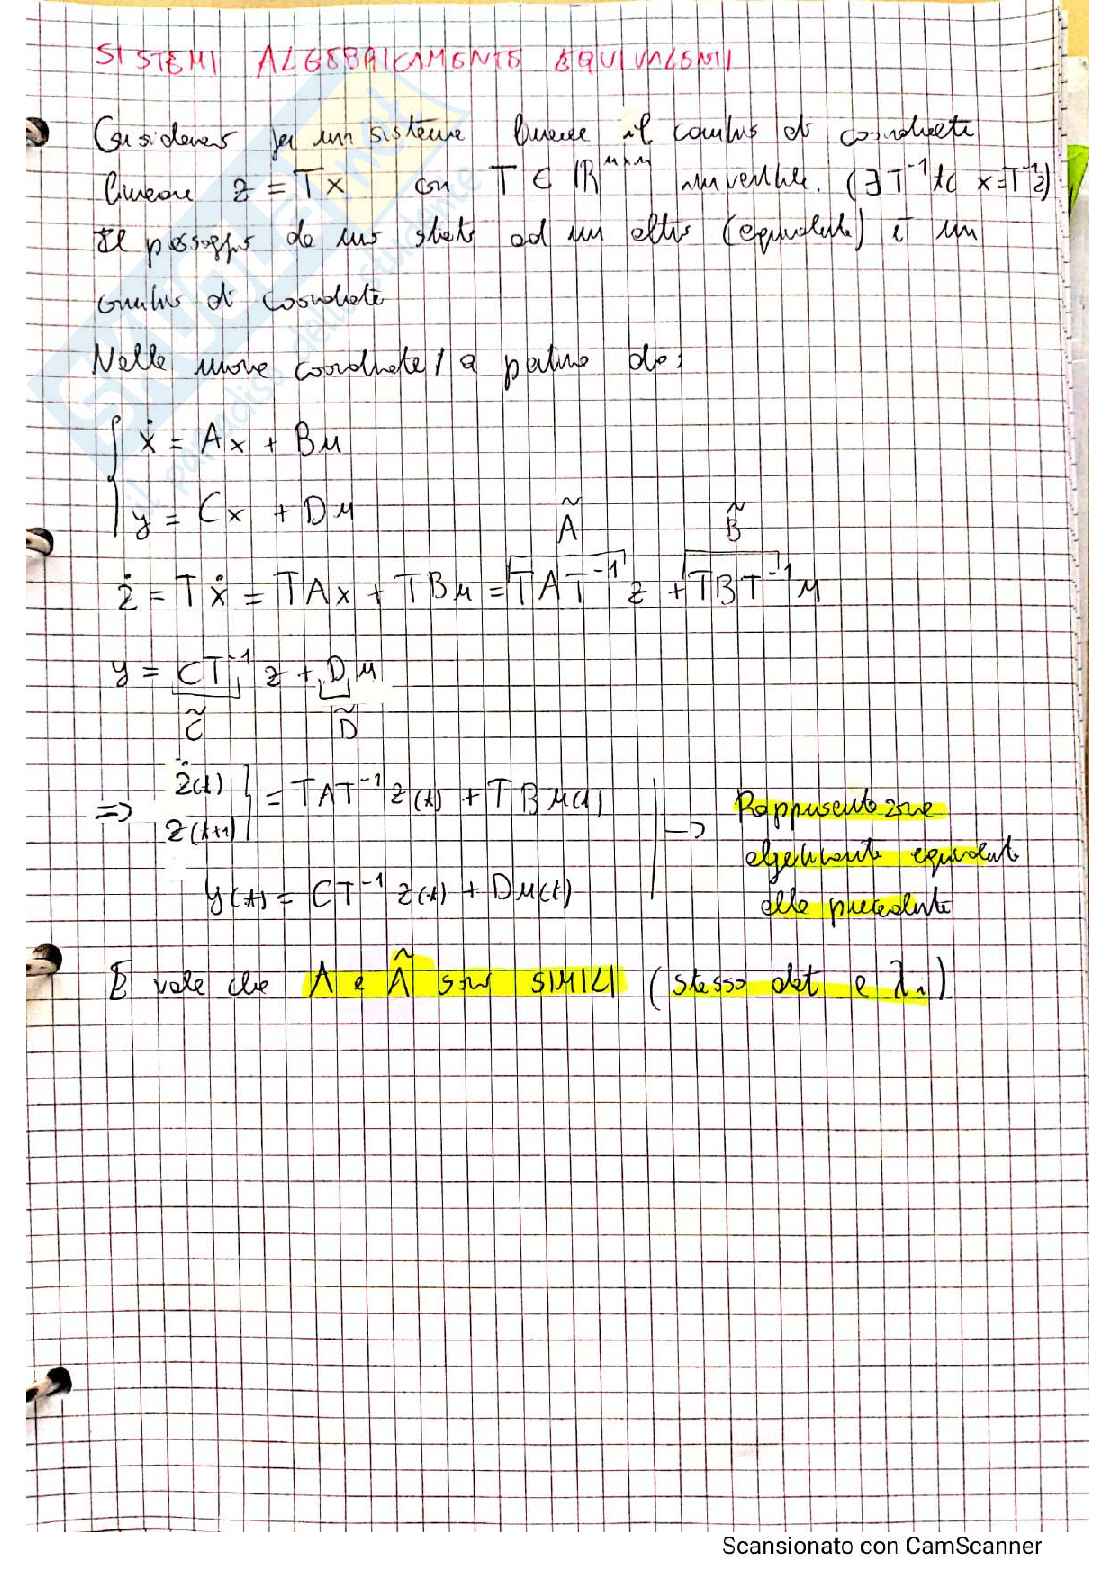 SISTEMI ALGEBRICAMENTE EQUIVALENTI
Consideriamo per un sistema lineare il cambio di coordinate
lineare z = Tx con T ∈ ℝⁿˣⁿ invertibile. (∃ T⁻¹ tc x = T⁻¹z)
Il passaggio da uno stato ad un altro (equivalente) è un
cambio di coordinate
Nelle nuove coordinate, a partire da:
ẋ = Ax + Bu
y = Cx + Du
Ã B̃
ż = Tẋ = TAx + TBu = TAT⁻¹ z + TBT⁻¹ u
y = CT⁻¹ z + Du
C̃ D̃
⇒ ż(t) } = TAT⁻¹ z(t) + TBu(t) → Rappresentazione
z(t+1) algebricamente equivalente
y(t) = CT⁻¹ z(t) + Du(t) alla precedente
E vale che A e Ã sono SIMILI (stesso det e λᵢ)
Scansionato con CamScanner